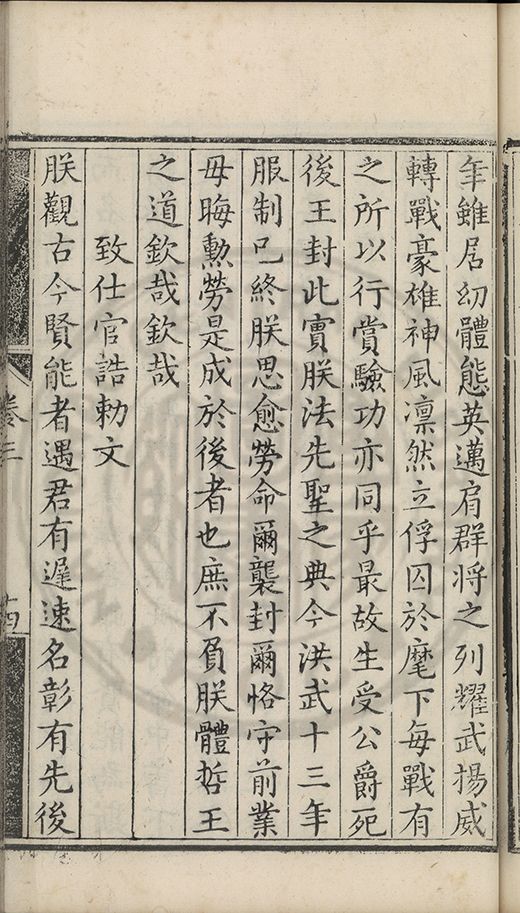 年雖居幼體態英邁肩群將之列耀武揚威
轉戰豪雄神風凛然立俘囚於麾下每戰有
之所以行賞驗功亦同乎最故生受公爵死
後王封此實朕法先聖之典今洪武十三年
服制已終朕思愈勞命爾襲封爾恪守前業
毋晦勲勞是成於後者也庶不負朕體哲王
之道欽哉欽哉
致仕官誥勅文
朕觀古今賢能者遇君有遲速名彰有先後
卷三